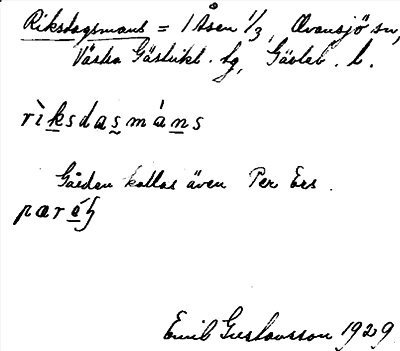 Riksdagsmans = 1 Åsen 1/3, Ovansjö sn,
Västra Gästrikl. hg, Gävleb. l.
rìksdasmáns
Gården kallas även Per Ers.
Emil Gustavsson 1929